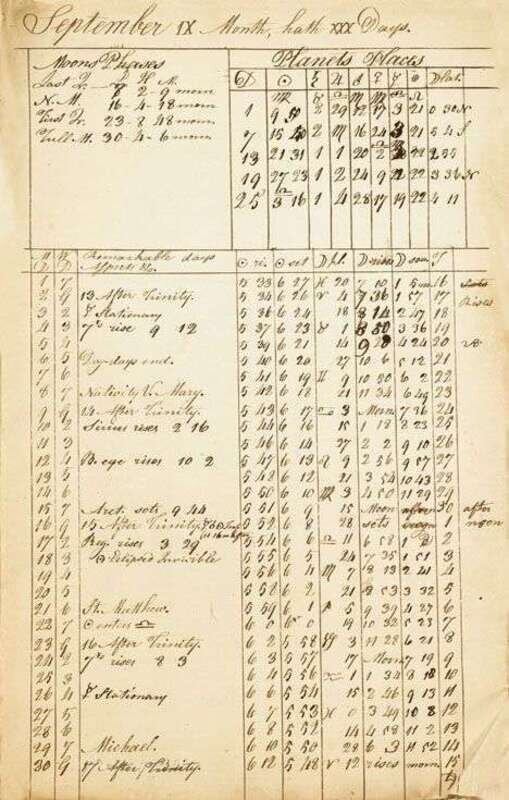 September IX Month, hath XXX Days.
Moons Phases
Planets Places
D H M
Last Q. 8 2 9 morn
N. M. 16 4 18 morn
First Q. 23 8 48 morn
Full M. 30 4 6 morn
D ☉ ♄ ♃ ♂ ♀ ☿ ☊ D Lat.
1 9 50 2 29 12 17 3 21 0 30 N
7 15 40 2 ♏ 16 24 3 21 5 4 S
13 21 31 1 1 20 2
19 27 23 1 2 24 9 22 22 3 36 N
25 3 16 1 4 28 17 19 22 4 11
M D W D Remarkable days Aspects &c. ☉ ri. ☉ set D pl. D rise D sou. T
1 7 5 33 6 27 ♓ 20 7 10 1 5 m 16 Sets
2 G 13 After Trinity. 5 34 6 26 ♈ 4 7 36 1 57 17 Rises
3 2 ☿ Stationary 5 36 6 24 18 8 14 2 47 18
4 3 7*s rise 9 12 5 37 6 23 ♉ 1 8 50 3 36 19
5 4 5 39 6 21 14 9 28 4 24 20
6 5 Dog-days end. 5 40 6 20 27 10 6 5 12 21
7 6 5 41 6 19 ♊ 9 10 50 6 2 22
8 7 Nativity V. Mary. 5 42 6 18 21 11 34 6 49 23
9 G 14 After Trinity. 5 43 6 17 ♋ 3 Morn 7 36 24
10 2 Sirius rises 2 16 5 44 6 16 15 1 18 8 23 25
11 3 5 46 6 14 27 2 2 9 10 26
12 4 B. eye rises 10 2 5 47 6 13 ♌ 9 2 56 9 57 27
13 5 5 48 6 12 21 3 54 10 43 28
14 6 5 50 6 10 ♍ 3 4 50 11 29 29
15 7 Arct. sets 9 44 5 51 6 9 15 Moon after 30 after
16 G 15 After Trinity. 5 52 6 8 28 sets 1 noon
17 2 Reg. rises 3 29 5 54 6 6 ♎ 11 6 58 1 2
18 3 ☉ Eclipsed Invisible 5 55 6 5 24 7 35 1 51 3
19 4 5 56 6 4 ♏ 7 8 13 2 41 4
20 5 5 58 6 2 21 8 53 3 32 5
21 6 St. Matthew. 5 59 6 1 ♐ 5 9 39 4 27 6
22 7 ☉ enters ♎ 6 0 6 0 19 10 32 5 23 7
23 G 16 After Trinity. 6 2 5 58 ♑ 3 11 28 6 21 8
24 2 7*s rises 8 3 6 3 5 57 17 Moon 7 19 9
25 3 6 4 5 56 ♒ 1 1 34 8 18 10
26 4 ☿ Stationary 6 6 5 54 15 2 46 9 13 11
27 5 6 7 5 53 ♓ 0 3 49 10 8 12
28 6 6 8 5 52 14 4 58 11 2 13
29 7 Michael. 6 10 5 50 28 6 3 11 52 14
30 G 17 After Trinity. 6 12 5 48 ♈ 12 rises morn 15